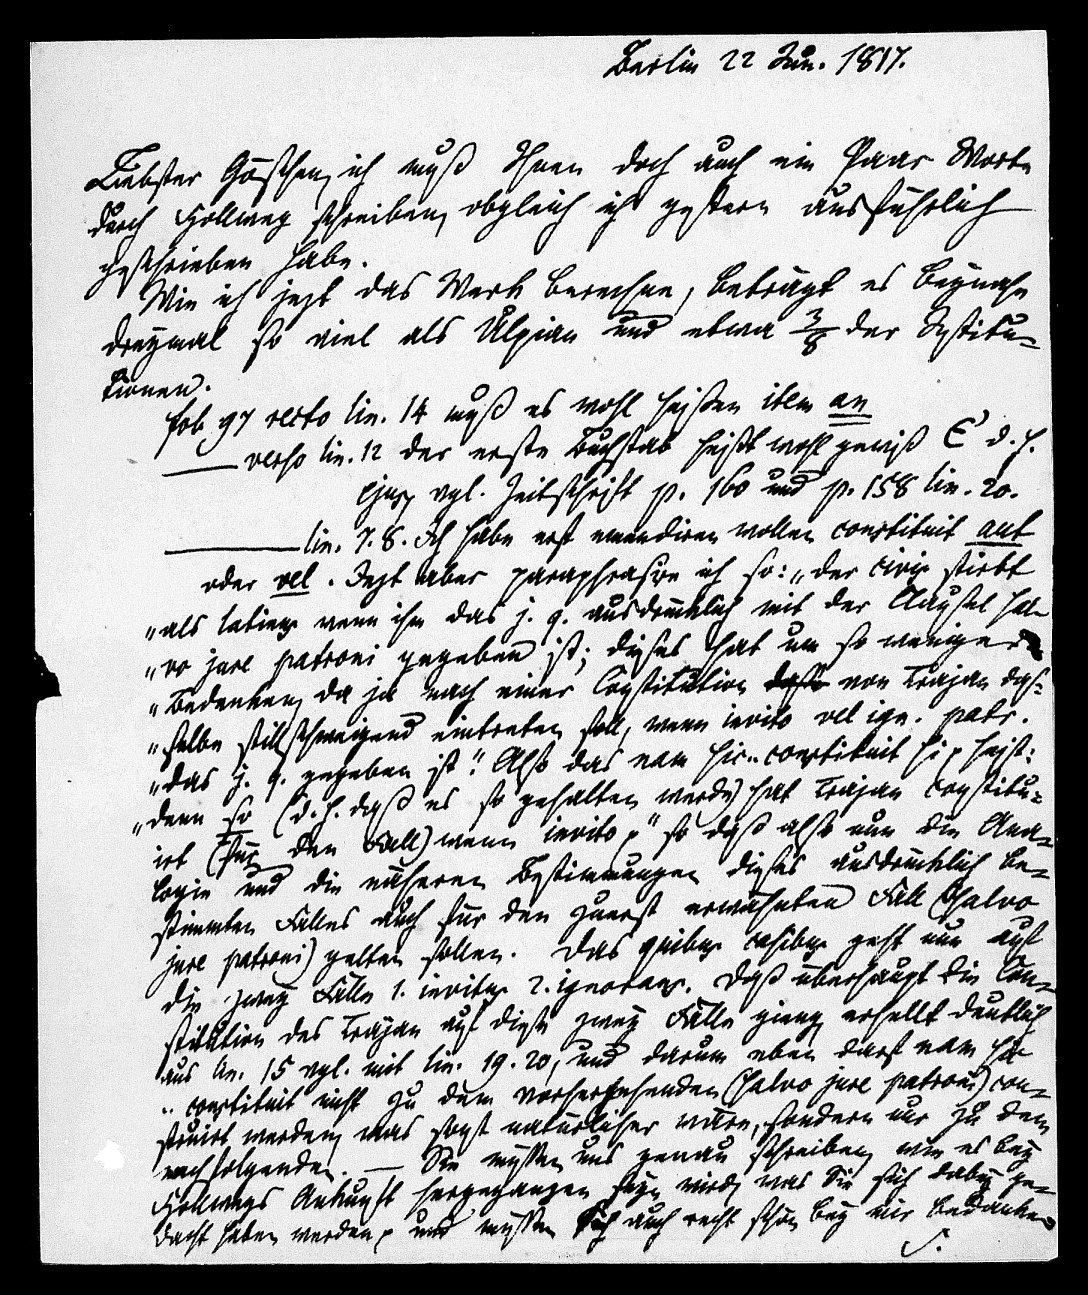 Berlin 22 Jun. 1817.
Liebster Göschen, ich muß Ihnen doch auch ein Paar Worte
durch Hollweg schreiben, obgleich ich gestern ausführlich
geschrieben habe.
Wie ich jezt das Werk berechne, beträgt es beynahe
dreymal so viel als Ulpian und etwa 3/8 der Institu-
tionen.
fol 97 recto lin. 14 muß es wohl heissen item an
verso lin. 12 der erste Buchstab heißt wohl gewiß E' d. h.
ejus, vgl. Zeitschrift p. 160 und p. 158 lin. 20.
lin. 7. 8. Ich habe erst emendiren wollen constituit aut
oder vel. Jezt aber paraphrasire ich so: „der civis stirbt
„als latinus wenn ihm das j. q. ausdrücklich mit der Clausel sal-
„vo jure patroni gegeben ist; dieses hat um so weniger
„Bedenken, da ja nach einer Constitution von Trajan das-
„selbe stillschweigend eintreten soll, wenn invito vel ign. patr.
„das j. q. gegeben ist." Also das nam hic.. constituit hi, heist:
„denn so (d. h. daß es so gehalten werde) hat Trajan constitu-
irt (für den Fall) wenn invito," so daß also nun die Ana-
logie und die näheren Bestimmungen dieses ausdrücklich be-
stimmten Falles auch für den zuerst erwähnten Fall (salvo
jure patroni) gelten sollen. Das quibus casibus geht nun auf
die zwey Fälle 1. invitus 2. ignorans. Daß überhaupt die Con-
stitution des Trajan auf diese zwey Fälle gieng, erhellt deutlich
aus lin. 15 vgl. mit lin. 19. 20, und darum eben darf nam hic
.. constituit nicht zu dem vorhergehenden (salvo jure patroni) con-
struirt werden, was sonst natürlicher wäre, sondern nur zu dem
nachfolgenden. — Sie müssen uns genau schreiben, wie es bey
Hollwegs Ankunft hergegangen seyn wird, was Sie sich dabey ge-
dacht haben werden, und müssen sich auch recht schön bey mir bedanken
S.